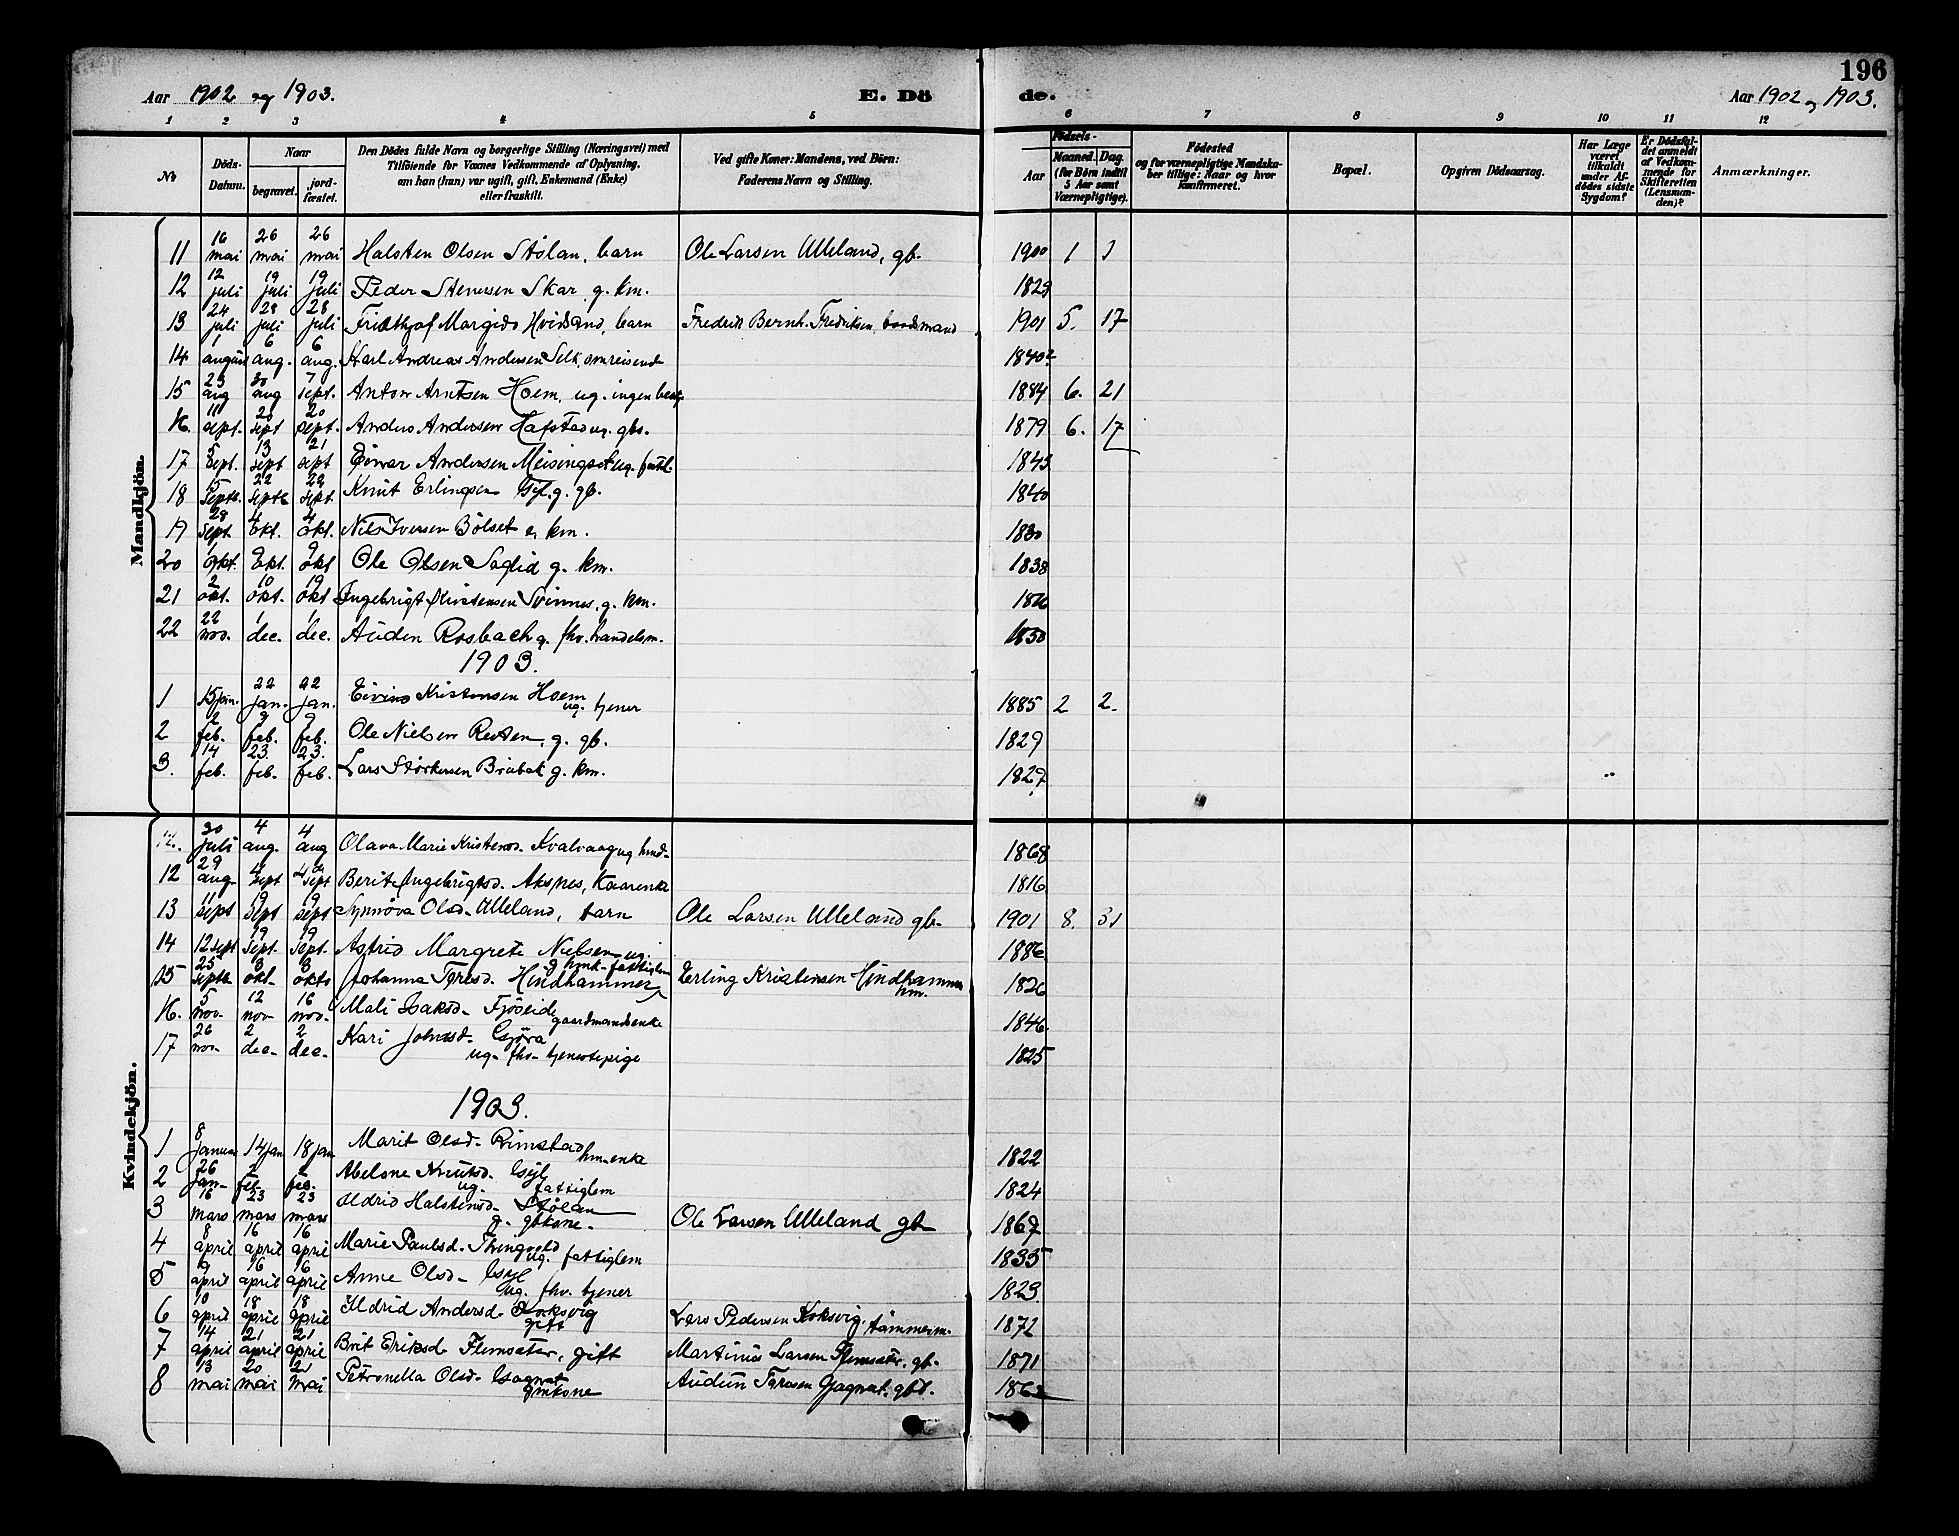 196
Aar 1902 og 1903. E. Dö de. Aar 1902 og 1903.
1 2 3 4 5 6 7 8 9 10 11 12
No
Döds-Datum.
Naar
begravet.
jord-fæstet.
Den Dödes fulde Navn og borgerlige Stilling (Næringsvei) med
Tilföiende for Voxnes Vedkommende af Oplysning,
om han (hun) var ugift, gift, Enkemand (Enke)
eller fraskilt.
Ved gifte Koner: Mandens, ved Börn:
Faderens Navn og Stilling.
Födsels-
Aar
Maaned. Dag.
(for Börn indtil
5 Aar samt
Værnepligtige).
Födested
og for værnepligtige Mandska-
ber tillige: Naar og hvor
konfirmeret.
Bopæl.
Opgiven Dödsaarsag.
Har Læge
været
tilkaldt
under Af-
dödes sidste
Sygdom?
Er Dödsfal-
det anmeldt
af Vedkom-
mende for
Skifteretten
(Lensman-
den)?
Anmærkninger.
Mandkjön.
11 16 mai 26 mai 26 mai Halsten Olsen Stölan, barn Ole Larsen Ulleland, gb. 1900 1 1
12 12 juli 19 juli 19 juli Peder Stenersen Skar g. km. 1829
13 24 juli 28 juli 28 juli Fridthjof Margido Hvidsand, barn Fredrik Bernh. Fredriksen, baadsmand 1901 5. 17
14 1 august 6 aug. 6 aug. Karl Andreas Andersen Selk, omreisende 1840
15 23 aug 30 aug 7 sept. Anton Arntsen Hoem, ug. ingen 1884 6. 21
16. 11 sept. 20 sept 20 sept. Anders Andersen Hafstad ug. gbs. 1879 6. 17
17 5 sept. 13 sept 21 sept Einar Andersen Meisingset ug. 1843
18 15 septb. 22 septb 22 sept. Knut Erlingsen g. gb. 1840
19 28 sept. 4 okt. 4 okt. Nils Iversen Bölset e. km. 1830
20 1 okt. 9 okt. 9 okt Ole Olsen Saglid g. km. 1838
21 2 okt. 10 okt. 19 okt Ingebrigt Christensen Svinnes, g. km.
22 22 nov. 1 dec. 1 dec. Auden Rosbach g. fhv. handelsm. 1850
1903.
1 15 jan. 22 jan. 22 jan. Eivind Kristensen Hoem ug. tjener 1885 2 2.
2 2 feb. 9 feb. 9 feb. Ole Nielsen Reiten, g. gb. 1829
3. 14 feb. 23. feb. 23. feb. Lars Störkersen Bræbak g. km. 1827
Kvindekjön.
30 juli 4 aug. 4 aug Olava Marie Kristensd. Kvalvaag ug 1868
12 29 aug 4 sept 4 sept Berit Ingebrigtsd. Aksnes, Kaarenke 1816
13 11 sept 19 sept 19 sept Synnöva Olsd. Ulleland, barn Ole Larsen Ulleland gb. 1901 8. 31
14 12 sept 19 sept. 19 sept. Astrid Margrete Nielsen ug. 1886
15 25 septb 3 okt. 8 okt. Johanna Toresd. Hindhammer g. hmk. fattiglem Erling Kristensen Hindhammer hm. 1826
16. 5 nov. 12 nov 16 nov. Mali Isaksd. Fjöseide gaardmandsenke 1846
17 26 nov. 2 dec. 2 dec. Kari Johnsd. Gjöra ug. fhv. tjenestepige 1825
1903.
1 8 januar 14 jan 18 jan Marit Olsd. Rimstad hm. enke 1822
2 26 jan. 2 feb. 2 feb. Abelone Knutsd. Gyl ug. fattiglem 1824
3 16 mars 23 mars 23 mars Ildrid Halstensd. Stölan g. gbkone. Ole Larsen Ulleland gb 1867
4 8 april 16 april 16 april Marie Paulsd. Thingvold ug. fattiglem 1835
5 9 april 16 april 16 april Anne Olsd. Gyl ug. fhv. tjener 1823
6 10 april 18 april 18 april Ildrid Andersd. Koksvig gift Lars Pedersen Koksvig, tömmerm. 1872
7 14 april 21 april 21 april Brit Eriksd. Flemsæter, gift Martinus Larsen Flemsæter, gb. 1871
8 13 mai 20 mai 20 mai Petronella Olsd. Gagnat gmkone Audun Toresen Gagnat, gbd. 1862